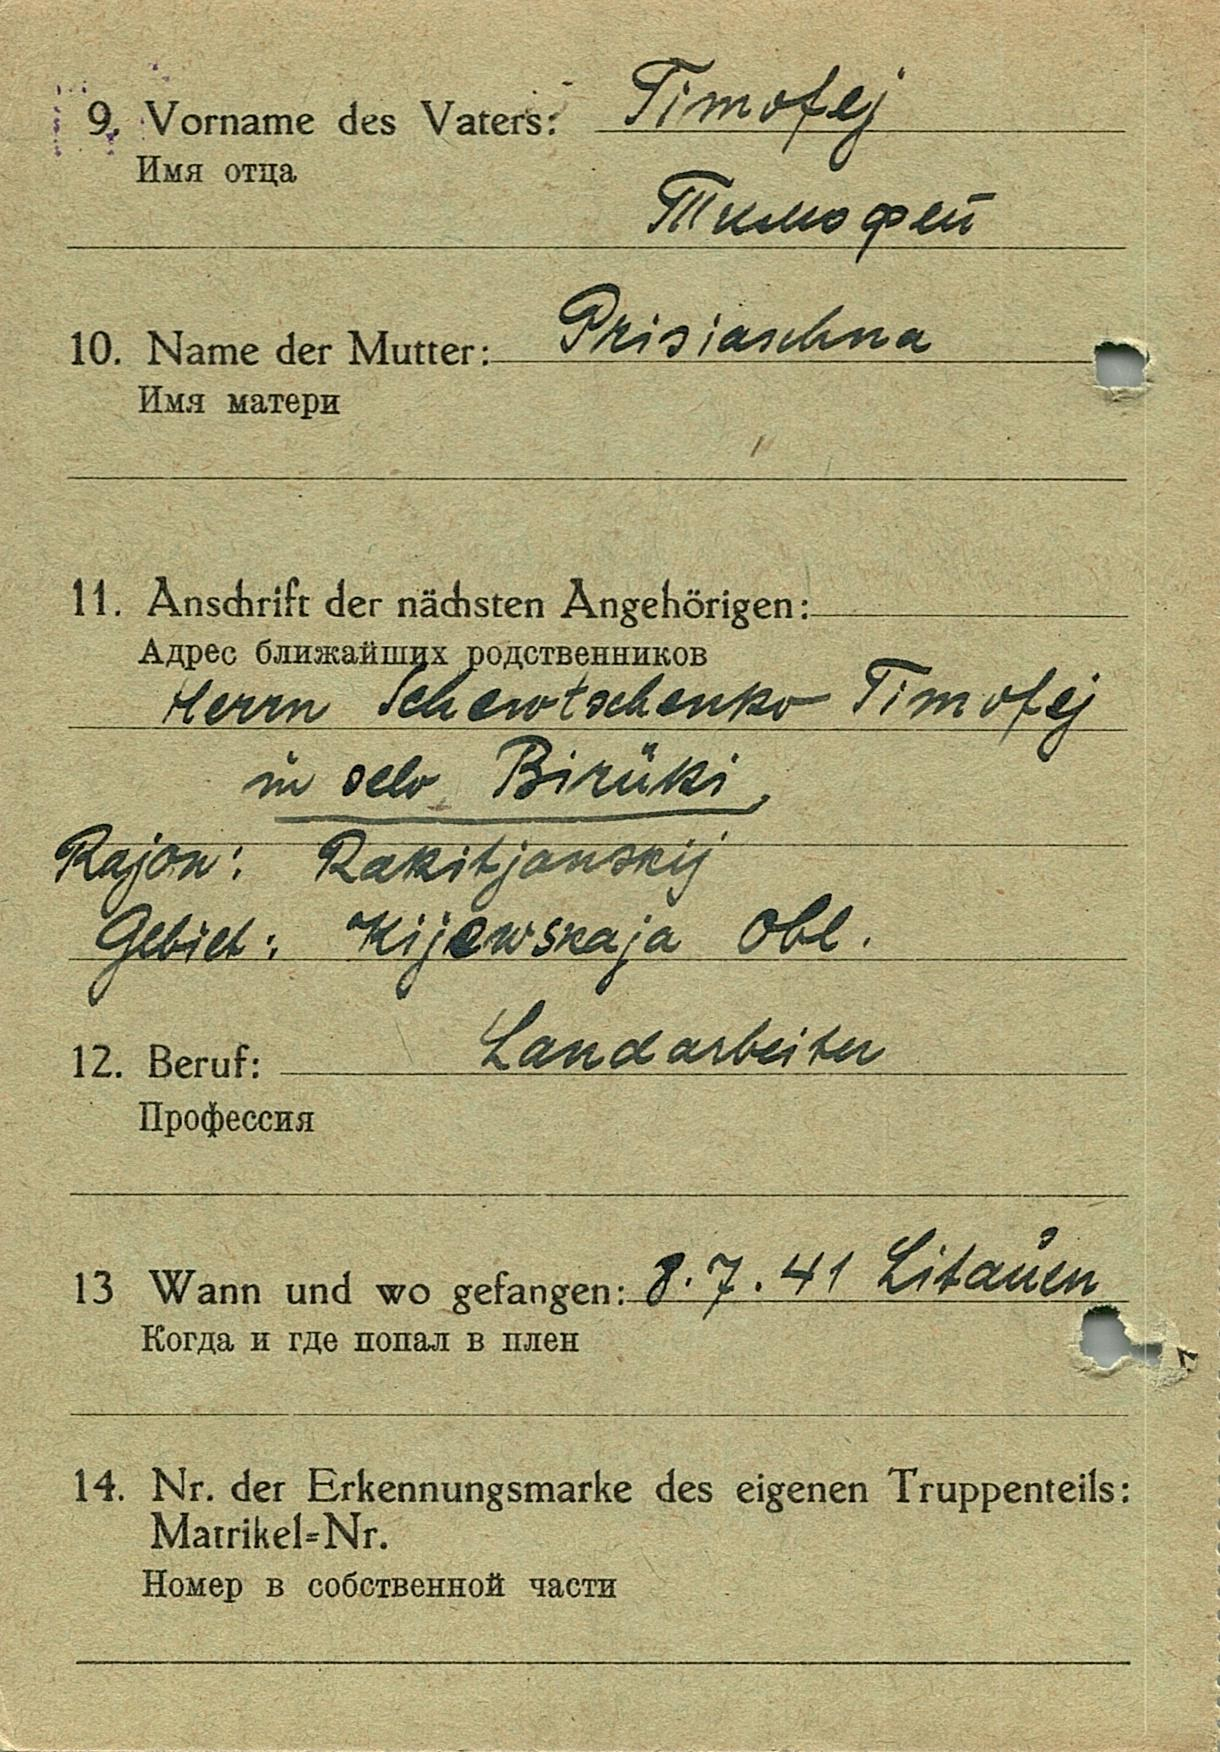 9. Vorname des Vaters: Timofej
Имя отца
Тимофей
10. Name der Mutter: Prisiaschna
Имя матери
11. Anschrift der nächsten Angehörigen:
Адрес ближайших родственников
Herrn Schewtschenko Timofej
in selo Birüki,
Rajon: Rakitjanskij
Gebiet: Kijewskaja obl.
12. Beruf: Landarbeiter
Профессия
13 Wann und wo gefangen: 8.7.41 Litauen
Когда и где попал в плен
14. Nr. der Erkennungsmarke des eigenen Truppenteils:
Matrikel=Nr.
Номер в собственной части